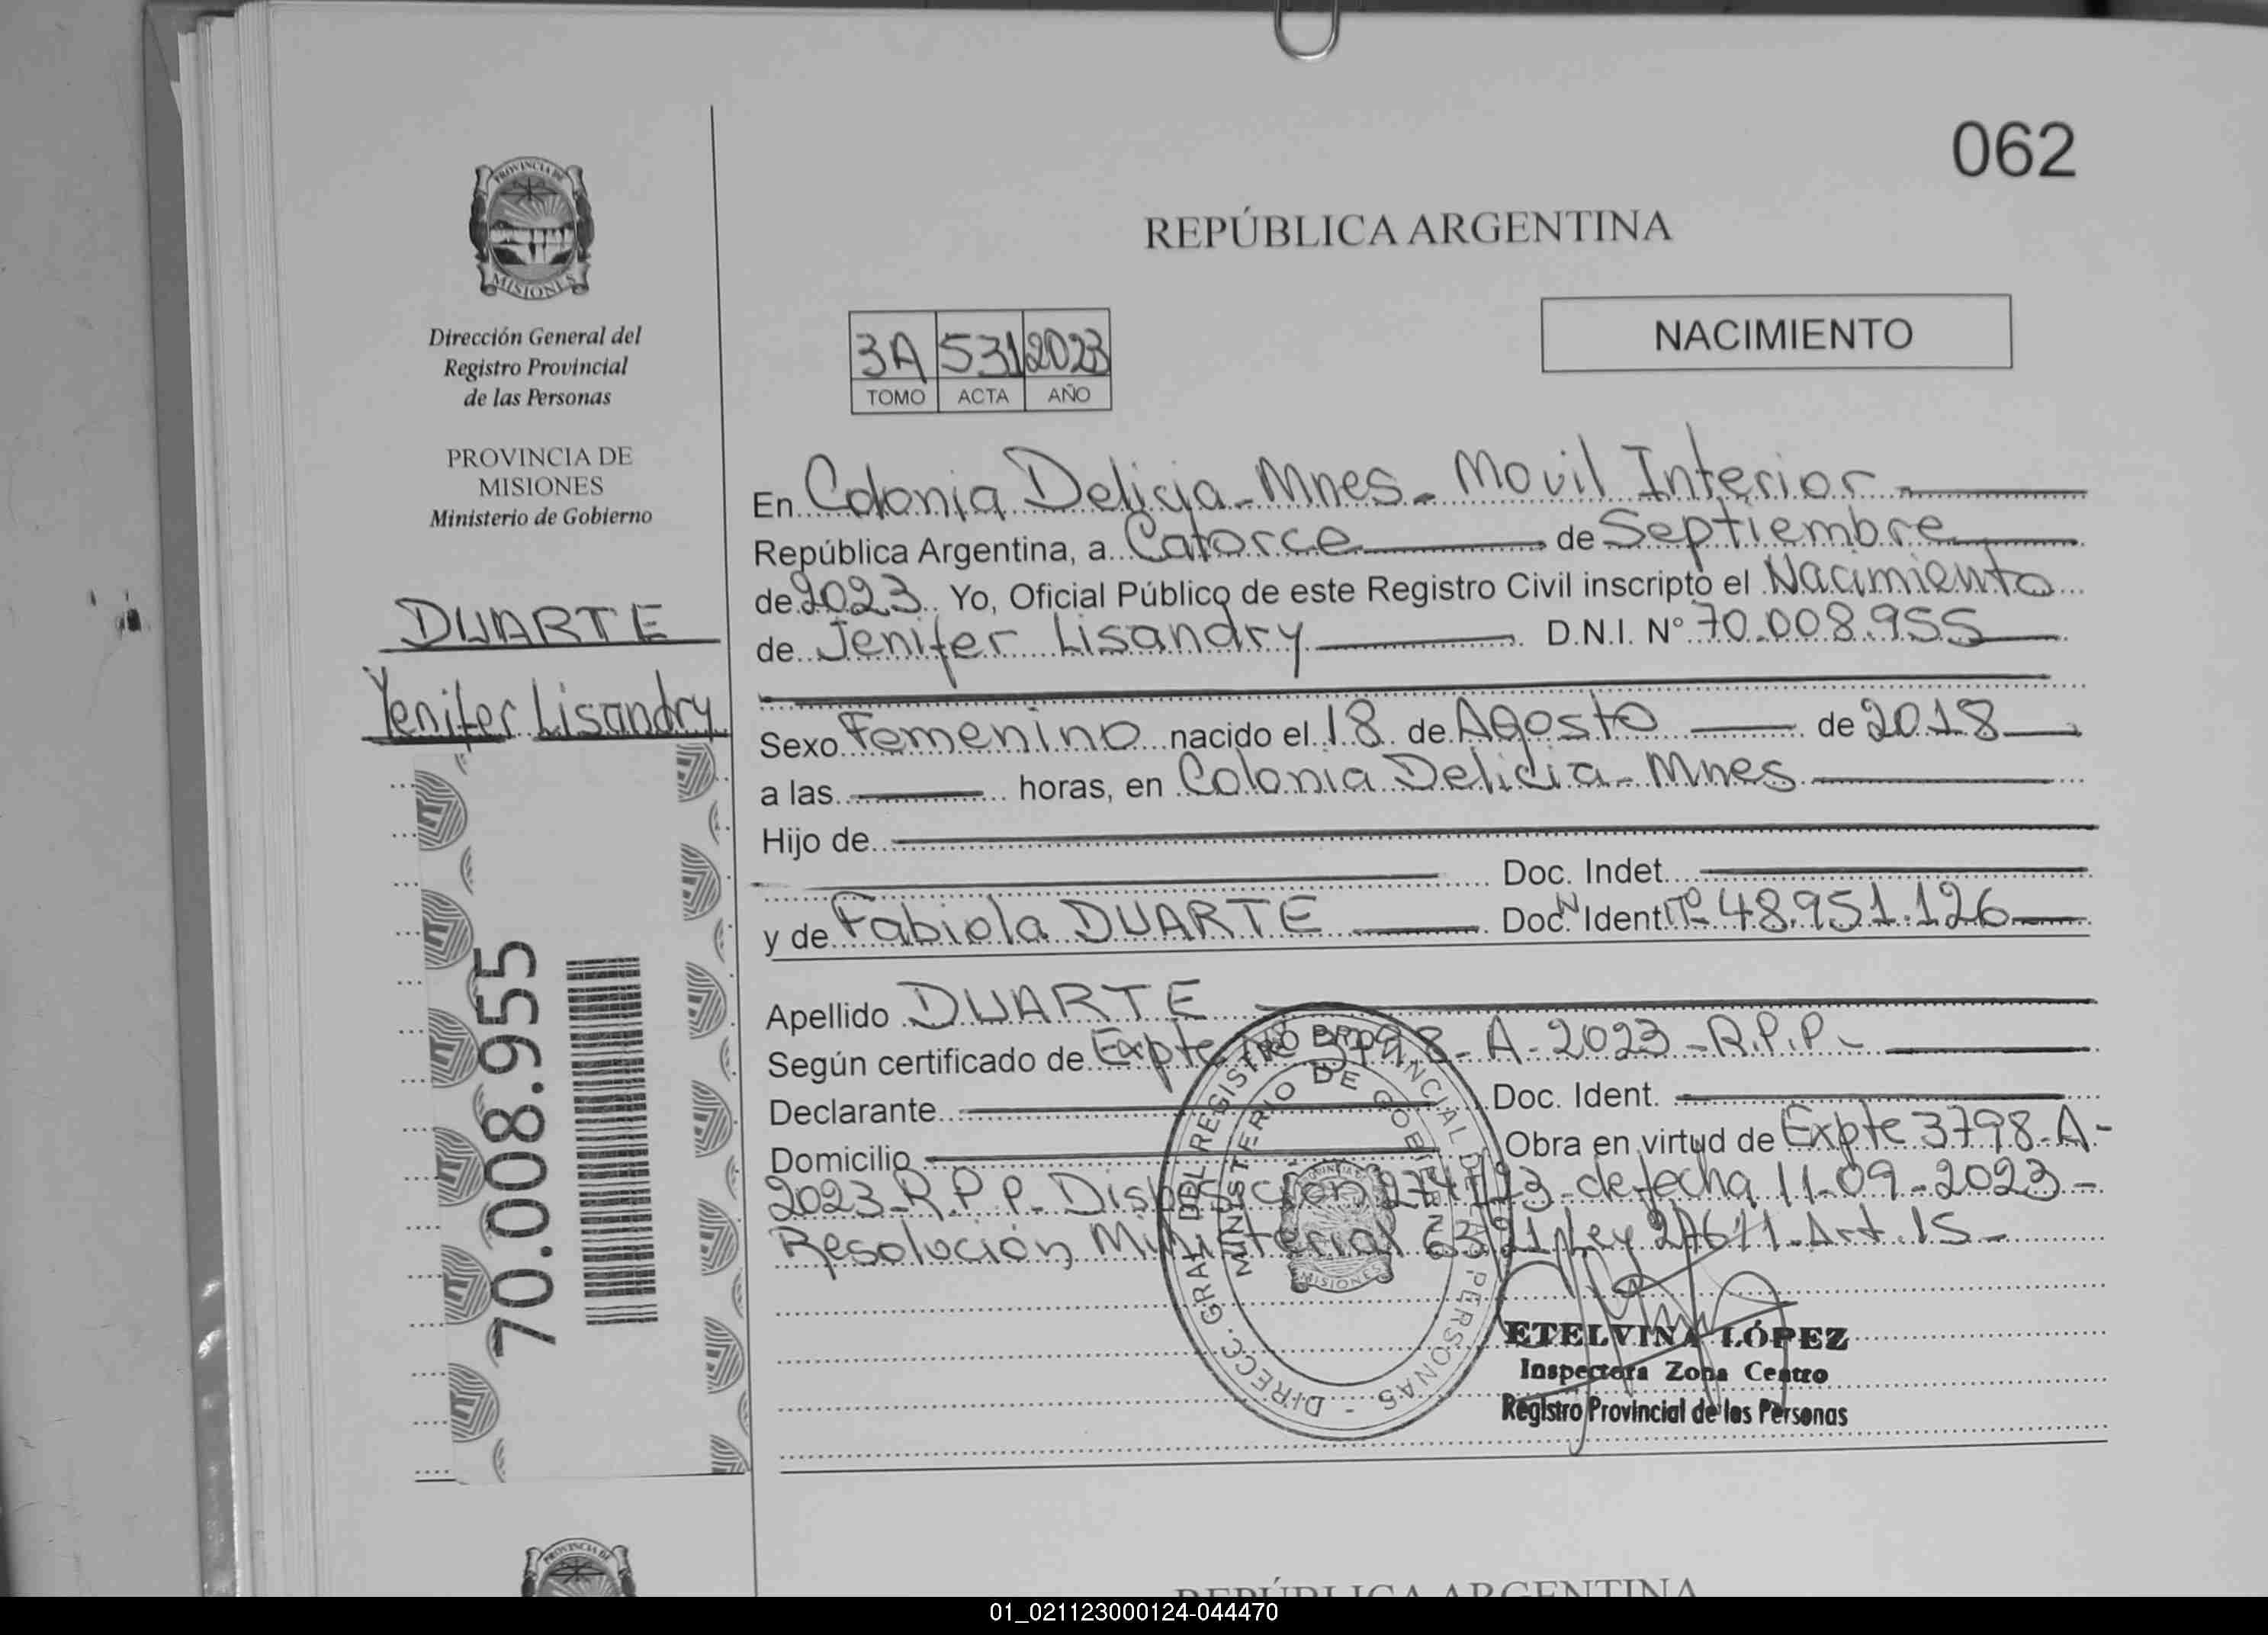 062
PROVINCIA DE
MISIONES
Dirección General del
Registro Provincial
de las Personas
PROVINCIA DE
MISIONES
Ministerio de Gobierno
DUARTE
Yenifer Lisandry
70.008.955
REPÚBLICA ARGENTINA
NACIMIENTO
3A 531 2023
TOMO ACTA AÑO
En Colonia Delicia - Mnes - Movil Interior
República Argentina, a Catorce de Septiembre
de 2023. Yo, Oficial Público de este Registro Civil inscripto el Nacimiento
de Jenifer Lisandry D.N.I. N° 70.008.955
Sexo Femenino nacido el 18 de Agosto de 2018
a las horas, en Colonia Delicia - Mnes
Hijo de
Doc. Indet.
y de Fabiola DUARTE Doc. Ident. N° 48.951.126
Apellido DUARTE
Según certificado de Expte N° 3798 - A - 2023 - R.P.P. -
Declarante Doc. Ident.
Domicilio Obra en virtud de Expte 3798 - A -
2023 - R.P.P. Disposición 2747/23 - de fecha 11-09-2023 -
Resolución Ministerial 63/21 Ley 27611 - Art. 15 -
DIRECC. GRAL. DEL REGISTRO PROVINCIAL DE LAS PERSONAS -
MINISTERIO DE GOBIERNO
PROVINCIA
MISIONES
ETELVINA LÓPEZ
Inspectora Zona Centro
Registro Provincial de las Personas
PROVINCIA DE
REPÚBLICA ARGENTINA
01_021123000124-044470